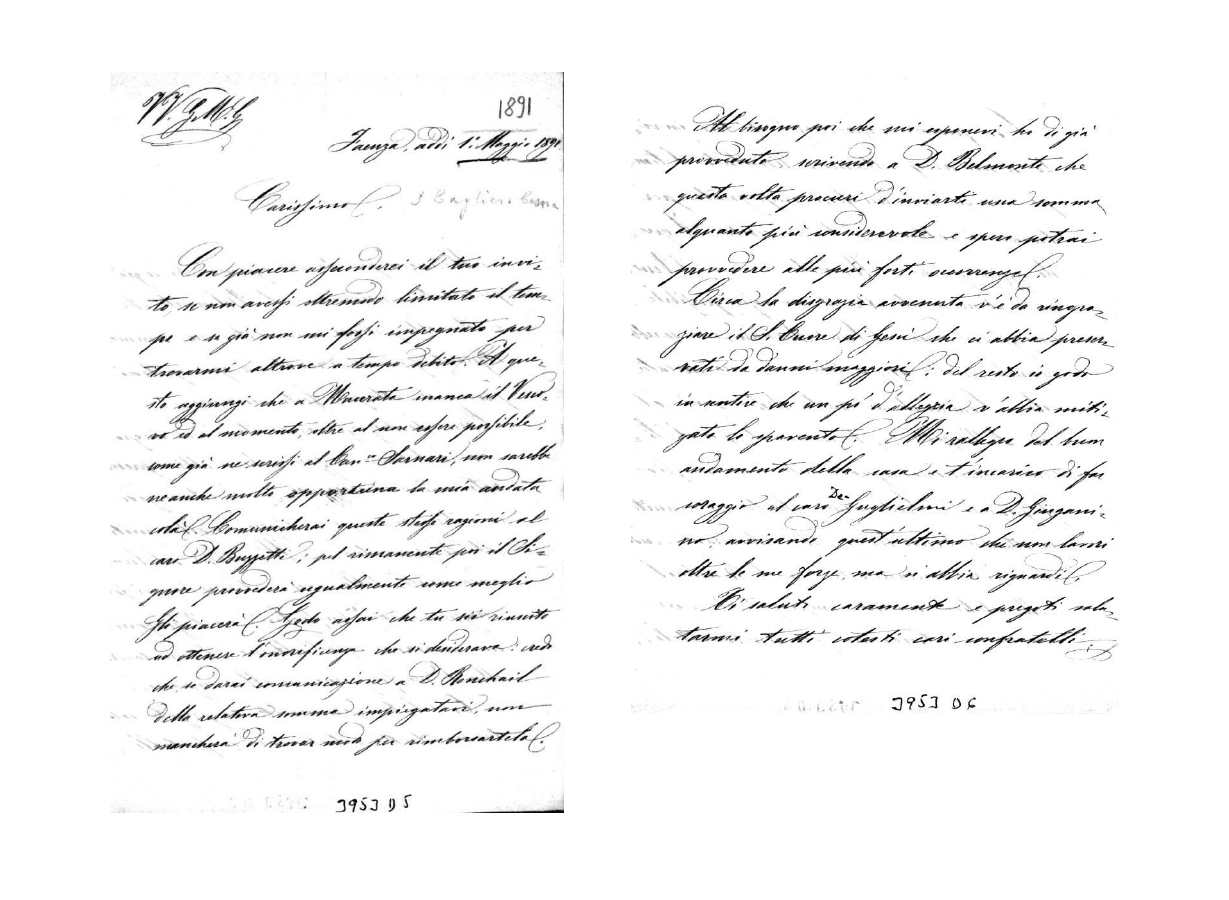 VV. G. M. G.
1891
Faenza, addì 1° Maggio 1891
Carissimo. D Cagliero Cesare
Con piacere asseconderei il tuo invi-
to, se non avessi oltremodo limitato il tem-
po e se già non mi fossi impegnato per
trovarmi altrove a tempo debito. A que-
sto aggiungi che a Macerata manca il Vesco-
vo ed al momento, oltre al non essere possibile,
come già ne scrissi al Can.co Sarnari, non sarebbe
neanche molto opportuna la mia andata
colà. Comunicherai queste stesse ragioni al
caro D. Buzzetti; pel rimanente poi il Si-
gnore provvederà ugualmente come meglio
Gli piacerà. Godo assai che tu sia riuscito
ad ottenere l'onorificenza che si desiderava: credo
che se darai comunicazione a D. Ronchail
della relativa somma impiegatavi, non
mancherà di trovar modo per rimborsartela.
3953 D 5
Al bisogno poi che mi esponevi ho di già
provveduto scrivendo a D. Belmonte che
questa volta procuri d'inviarti una somma
alquanto più considerevole e spero potrai
provvedere alle più forti occorrenze.
Circa la disgrazia avvenuta v'è da ringra-
ziare il S. Cuore di Gesù che ci abbia preser-
vati da danni maggiori: del resto io godo
in sentire che un po' d'allegria v'abbia miti-
gato lo spavento. Mi rallegro del buon
andamento della casa e t'incarico di far
coraggio al caro De-Guglielmi e a D. Gingani-
no, avvisando quest'ultimo che non lavori
oltre le sue forze, ma si abbia riguardi.
Vi saluti caramente e pregoti salu-
tarmi tutti cotesti cari confratelli
3953 D 6